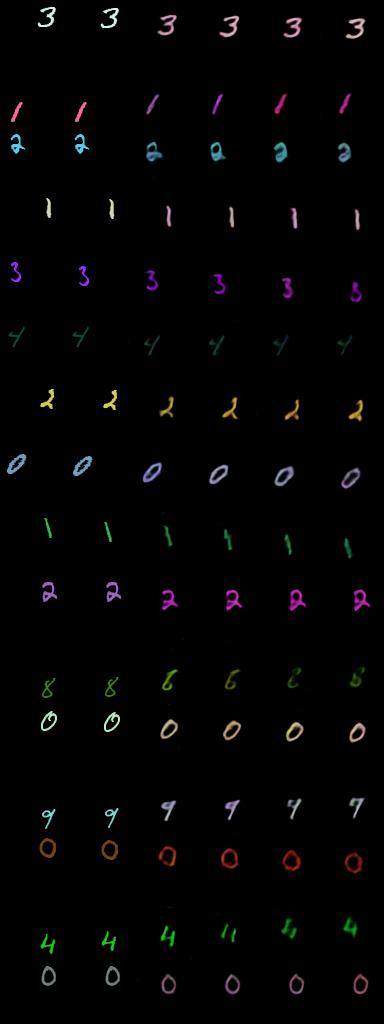 3 3 3 3 3 3
1 1 1 1 1 1
2 2 2 2 2 2
1 1 1 1 1 1
3 3 3 3 3 3
4 4 4 4 4 4
2 2 2 2 2 2
0 0 0 0 0 0
1 1 1 1 1
2 2 2 2 2 2
8 8 8 6 8
0 0 0 0 0 0
9 9 9 9 9 7
0 0 0 0 0 0
4 4 4 11 4
0 0 0 0 0 0